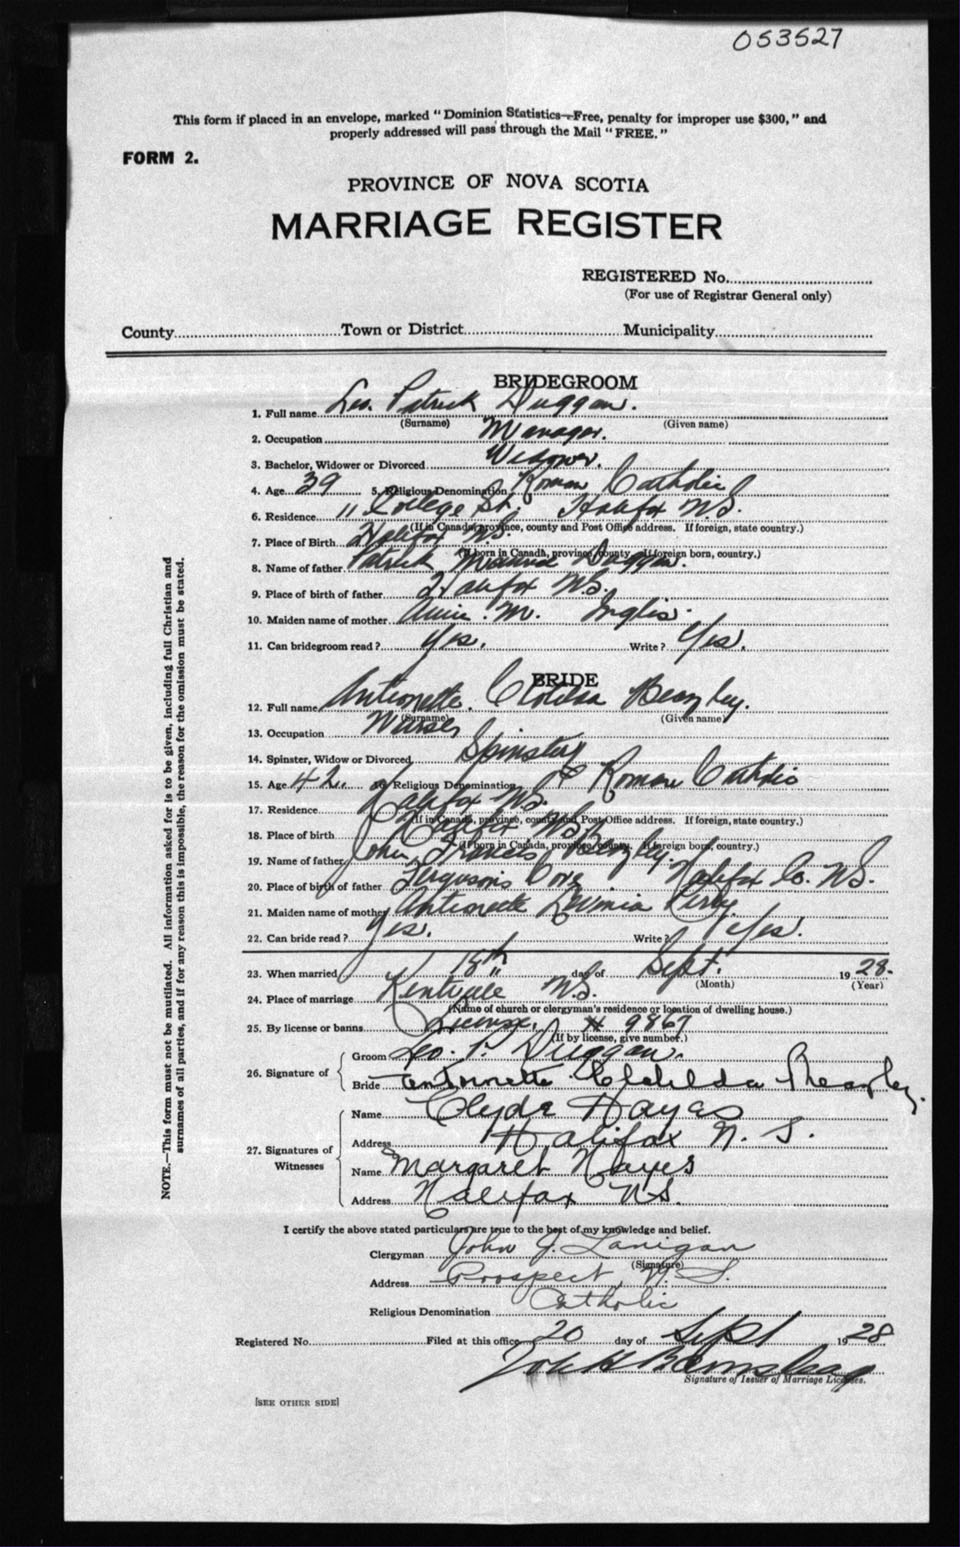 053527
This form if placed in an envelope, marked "Dominion Statistics—Free, penalty for improper use $300," and
properly addressed will pass through the Mail "FREE."
FORM 2.
PROVINCE OF NOVA SCOTIA
MARRIAGE REGISTER
REGISTERED No.
(For use of Registrar General only)
County Town or District Municipality
BRIDEGROOM
1. Full name Leo. Patrick Duggan.
(Surname) (Given name)
2. Occupation Manager.
3. Bachelor, Widower or Divorced Widower.
4. Age 39 5. Religious Denomination Roman Catholic
6. Residence 11 College St. Halifax N.S.
(If in Canada, province, county and Post Office address. If foreign, state country.)
7. Place of Birth Halifax N.S.
(If born in Canada, province, county. If foreign born, country.)
8. Name of father Patrick Duggan.
9. Place of birth of father Halifax N.S.
10. Maiden name of mother Annie M. Inglis.
11. Can bridegroom read? Yes. Write? Yes.
BRIDE
12. Full name Antionette Clotilda Beazley.
(Surname) (Given name)
13. Occupation Nurse
14. Spinster, Widow or Divorced Spinster
15. Age 42. 16. Religious Denomination Roman Catholic
17. Residence Halifax N.S.
(If in Canada, province, county and Post Office address. If foreign, state country.)
18. Place of birth Halifax N.S.
(If born in Canada, province, county. If foreign born, country.)
19. Name of father John Francis Beazley.
20. Place of birth of father Fergusons Cove Halifax Co. N.S.
21. Maiden name of mother Antionette Kirby.
22. Can bride read? Yes. Write? Yes.
23. When married 18th day of Sept. 1928.
(Month) (Year)
24. Place of marriage N.S.
(Name of church or clergyman's residence or location of dwelling house.)
25. By license or banns License, # 9867
(If by license, give number.)
26. Signature of Groom Leo. P. Duggan.
Bride Antoinette Clotilda Beazley.
27. Signatures of Witnesses Name Clyde Hayes
Address Halifax N. S.
Name Margaret Hayes
Address Halifax N.S.
I certify the above stated particulars are true to the best of my knowledge and belief.
Clergyman John J. Lanigan
(Signature)
Address Prospect, N. S.
Religious Denomination Catholic
Registered No. Filed at this office 20 day of Sept 1928
Signature of Issuer of Marriage Licenses.
[SEE OTHER SIDE]
NOTE.—This form must not be mutilated. All information asked for is to be given, including full Christian and
surnames of all parties, and if for any reason this is impossible, the reason for the omission must be stated.